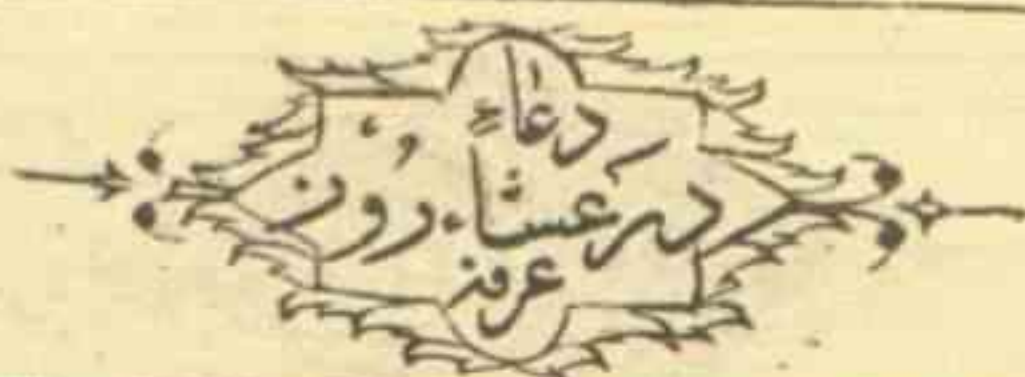 دعاء
در عشاء روز
عرفه